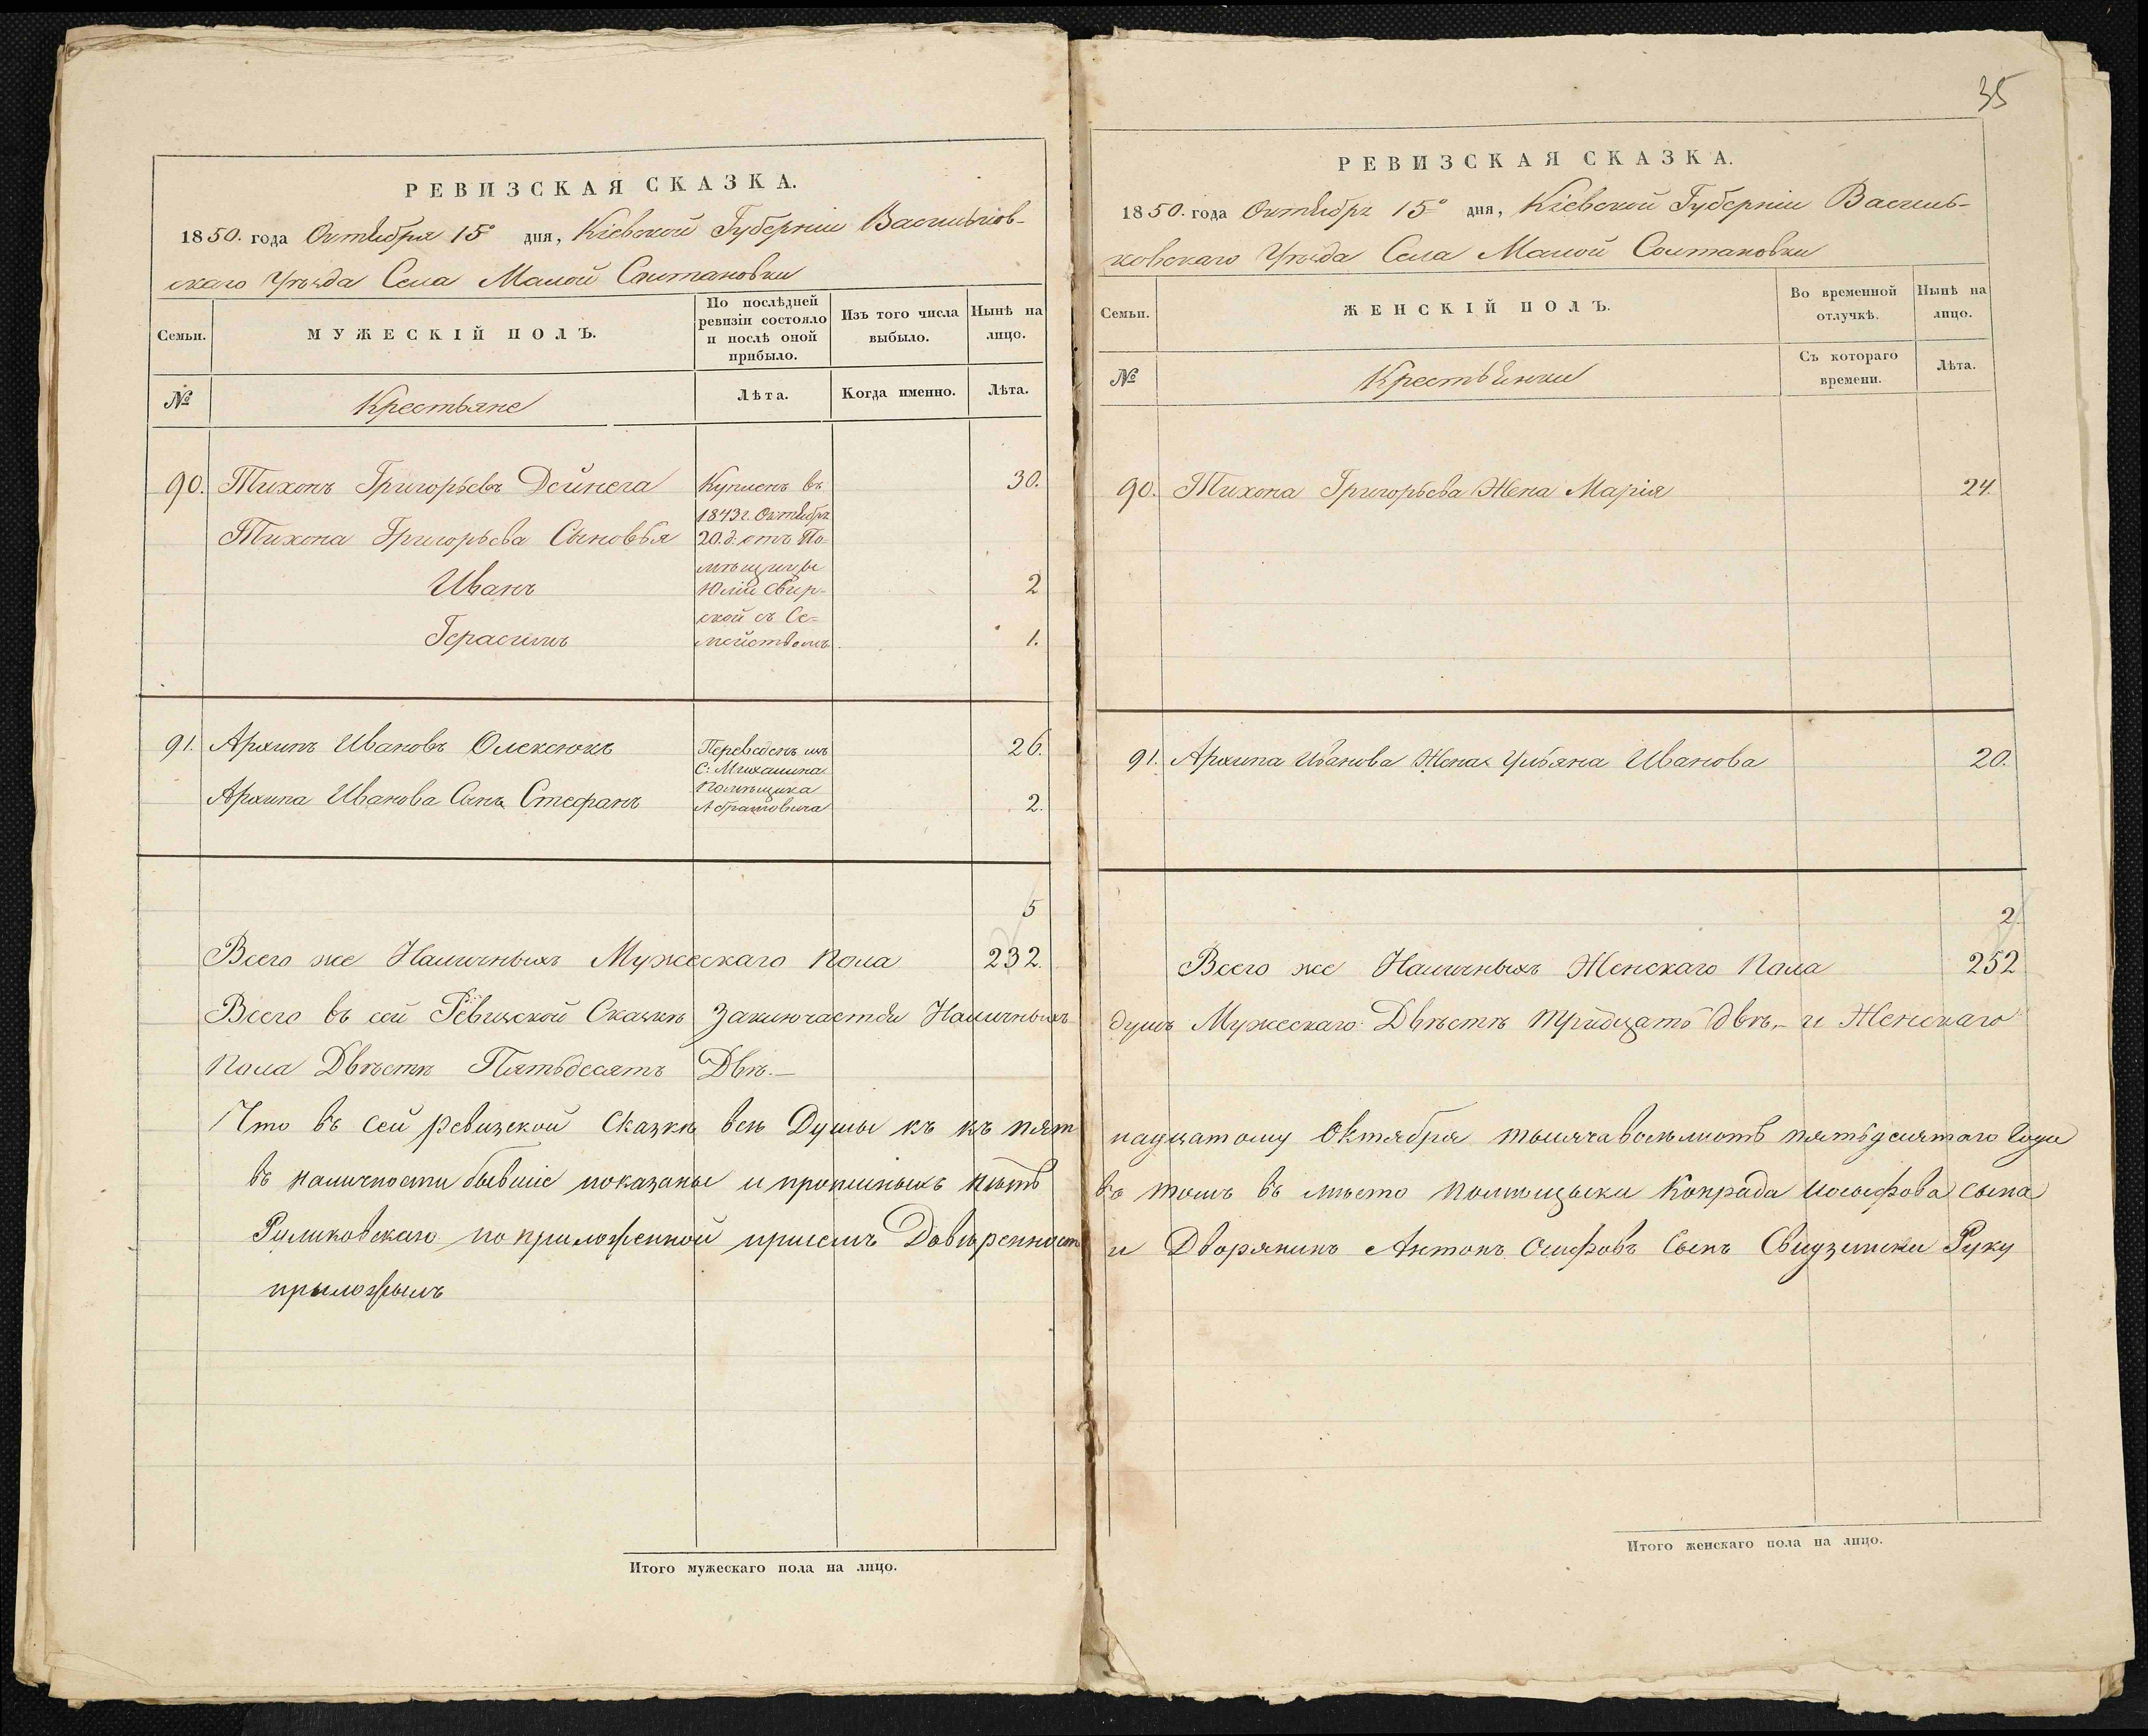 РЕВИЗСКАЯ СКАЗКА.
1850. года Октября 15º дня, Кіевской Губерніи Васильков-
скаго Уѣзда Села Малой Солтановки
Семьи.
МУЖЕСКІЙ ПОЛЪ.
По послѣдней
ревизіи состояло
и послѣ оной
прибыло.
Изъ того числа
выбыло.
Нынѣ на
лицо.
№
Крестьяне
Лѣта.
Когда именно.
Лѣта.
90. Тихонъ Григорьевъ Дейнега 30.
Тихона Григорьева Сыновья
Иванъ 2
Герасимъ 1.
Купленъ въ
1843г. Октября
20.д. отъ По-
мѣщицы
Юліи Свир-
ской съ Се-
мействомъ.
91. Архипъ Ивановъ Олексюкъ 26.
Архипа Иванова Сынъ Стефанъ 2.
Переведенъ изъ
С: Михалина
Помѣщика
Абрамовича
5
Всего же Наличныхъ Мужескаго пола 232.
Всего въ сей Ревизской Сказкѣ Заключается Наличныхъ
пола Двѣстѣ Пятьдесятъ Двѣ.—
Что въ сей ревизской Сказкѣ всѣ Души къ къ пят
въ наличности бывшіе показаны и
по приложенной присемъ Довѣренност
прыложылъ
Итого мужескаго пола на лицо.
35
РЕВИЗСКАЯ СКАЗКА.
1850. года Октября 15º дня, Кіевской Губерніи Василь-
ковскаго Уѣзда Села Малой Солтановки
Семьи.
ЖЕНСКІЙ ПОЛЪ.
Во временной
отлучкѣ.
Нынѣ на
лицо.
№
Крестьянки
Съ котораго
времени.
Лѣта.
90. Тихона Григорьева Жена Марія 24.
91. Архипа Иванова Жена Ульяна Иванова 20.
2.
Всего же Наличныхъ Женскаго Пола 252
душъ Мужескаго: Двѣстѣ тридцать двѣ,— и Женскаго
надцатому Октября тысяча восемьсотъ пятьдесятаго Года
въ томъ въ мѣсто Конрада Иосифова сына
и Дворянинъ Антонъ Осифовъ Сынъ Руку
Итого женскаго пола на лицо.